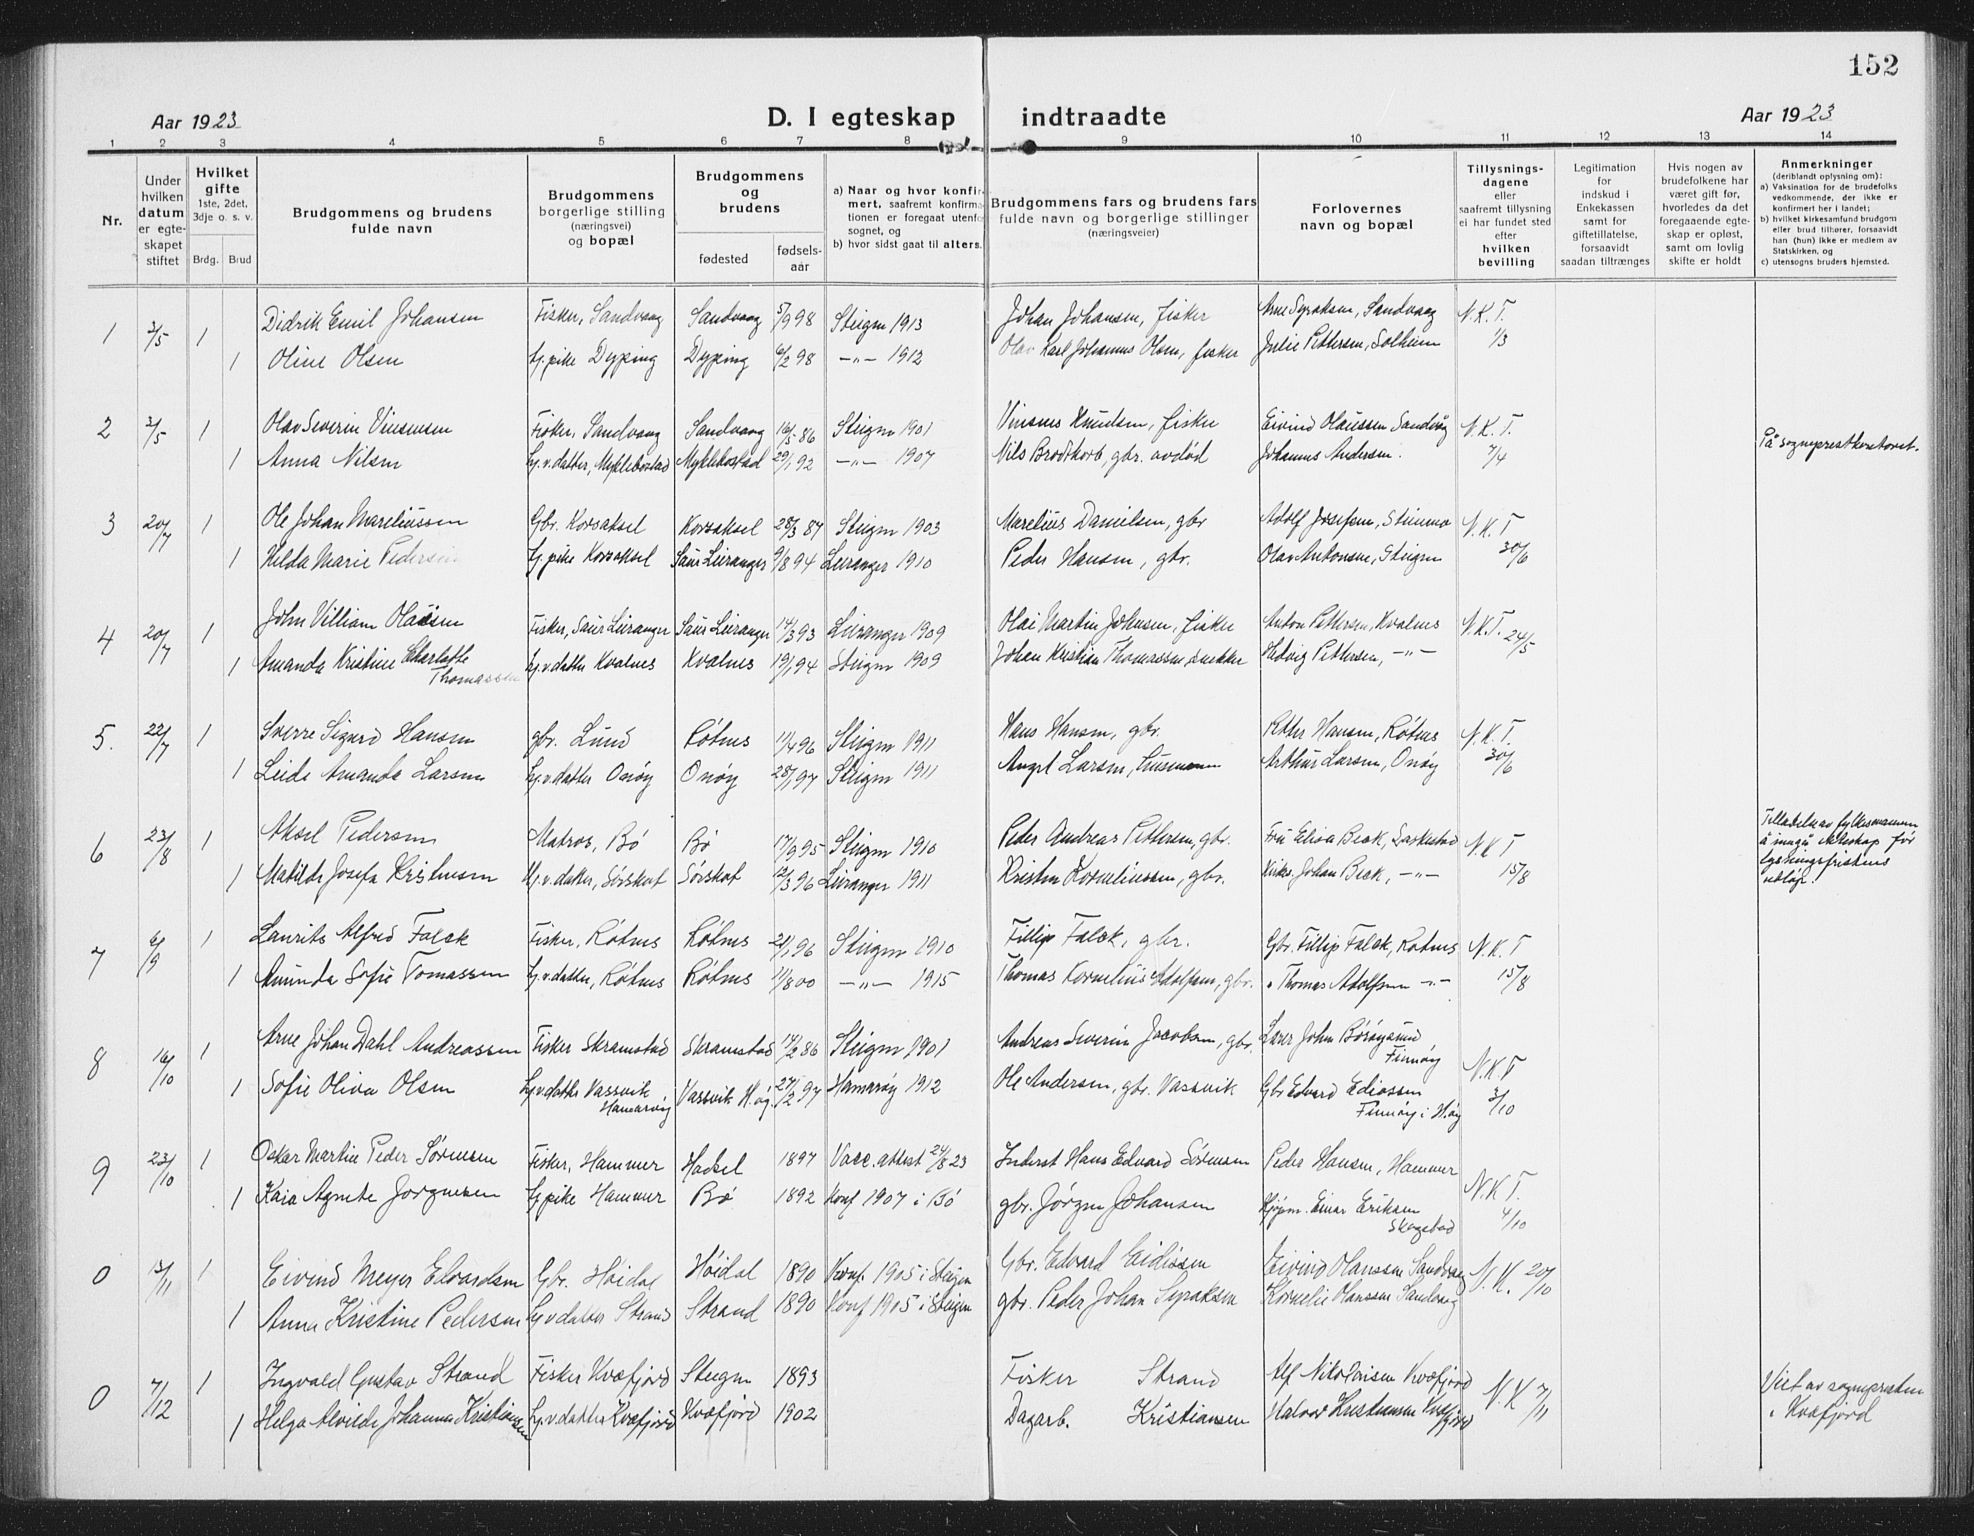 152
Aar 1923
D. I egteskap indtraadte
Aar 1923
1 2 3 4 5 6 7 8 9 10 11 12 13 14
Nr.
Under hvilken datum er egteskapet stiftet
Hvilket gifte 1ste, 2det, 3dje o. s. v.
Brdg. Brud
Brudgommens og brudens fulde navn
Brudgommens borgerlige stilling (næringsvei) og bopæl
Brudgommens og brudens
fødested
fødselsaar
a) Naar og hvor konfirmert, saafremt konfirmationen er foregaat utenfor sognet, og
b) hvor sidst gaat til alters.
Brudgommens fars og brudens fars fulde navn og borgerlige stillinger (næringsveier)
Forlovernes navn og bopæl
Tillysningsdagene eller saafremt tillysning ei har fundet sted efter hvilken bevilling
Legitimation for indskud i Enkekassen samt for giftetillatelse, forsaavidt saadan tiltrænges
Hvis nogen av brudefolkene har været gift før, hvorledes da det foregaaende egteskap er opløst, samt om lovlig skifte er holdt
Anmerkninger (deriblandt oplysning om):
a) Vaksination for de brudefolks vedkommende, der ikke er konfirmert her i landet;
b) hvilket kirkesamfund brudgom eller brud tilhører, forsaavidt han (hun) ikke er medlem av Statskirken, og
c) utensogns bruders hjemsted.
1 3/5 1 Didrik Emil Johansen Fisker, Sandvaag Sandvaag 5/9 98 Steigen 1913 Johan Johansen, fisker Arne Syraksen, Sandvaag N.K.T.
1 Oline Olsen hj.pike Dyping Dyping 6/2 98 —"— 1912 Olav Karl Johannes Olsen, fisker Julie Pettersen, Solheim 1/3
2 3/5 1 Olav Severin Vinsensen Fisker, Sandvaag Sandvaag 16/5 86 Steigen 1901 Vinsens Knudsen, fisker Eivind Olaussen Sandvåg N.K.T.
1 Anna Nilsen hj.v.datter, Myklebostad Myklebostad 29/1 92 —"— 1907 Nils Brodtkorb, gbr. avdød Johannes Andersen. 7/4 På sogneprestkontoret.
3 20/7 1 Ole Johan Mareliussen Gbr. Korsaksel Korsaksel 28/3 87 Steigen 1903 Marelius Danielsen, gbr Adolf Josefsen, Steinmo N.K.T
1 Hilda Marie Pedersen hj.pike Korsaksel Saur Leiranger 9/8 94 Leiranger 1910 Peder Hansen, gbr. Olav Antonsen, Steigen 30/6
4 20/7 1 John Villiam Olaisen Fisker, Saur Leiranger Saur Leiranger 14/3 93 Leiranger 1909 Olai Martin Johnsen, fisker Anton Pettersen, Kvalnes N.K.T. 24/5
1 Amanda Kristine Charlotte Thomassen hj.v.datter Kvalnes Kvalnes 19/1 94 Steigen 1909 Johan Kristian Thomassen snekker Hedvig Pettersen, —"—
5. 22/7 1 Sverre Sigurd Hansen gbr. Lund Røtnes 11/4 96 Steigen 1911 Hans Hansen, gbr. Petter Hansen, Røtnes N.K.T.
1 Leida Amanda Larsen hj.v.datter Onøy Onøy 28/1 97 Steigen 1911 Angel Larsen, husmann Arthur Larsen, Onøy 30/6
6 23/8 1 Aksel Pedersen Matros, Bø Bø 17/9 95 Steigen 1910 Peder Andreas Pettersen, gbr. Fru Elisa Beck, Laskestad N.K.T
1 Matilde Josefa Kristensen hj.v.datter, Sørskot Sørskot 2/3 96 Leiranger 1911 Kristen Korneliussen, gbr. Kirkes. Johan Beck, —"— 15/8
Tilladelse av fylkesmannen å inngå ekteskap før lysningsfristens utløp.
7 6/9 1 Laurits Alfred Falck Fisker, Røtnes Røtnes 21/1 96 Steigen 1910 Fillip Falck, gbr. Gbr. Fillip Falck, Røtnes N.K.T
1 Amunda Sofie Tomassen hj.v.datter, Røtnes Røtnes 11/8 00 —"— 1915 Thomas Kornelius Adolfsen, gbr. " Thomas Adolfsen —"— 15/8
8 16/10 1 Arne Johan Dahl Andreassen Fisker Skramstad Skramstad 14/2 86 Steigen 1901 Andreas Severin Jacobsen, gbr. Lærer John Børøysund Finnøy N.K.T
1 Sofie Oliva Olsen hj.v.datter Vassvik Hamarøy Vassvik H.øy. 27/2 97 Hamarøy 1912 Ole Andersen, gbr. Vassvik Gbr Edvard Ediassen Finnøy i H.øy 3/10
9 23/10 1 Oskar Martin Peder Sørensen Fisker, Hammer Hadsel 1897 Vacc. attest 24/8 23 Inderst Hans Edvard Sørensen Peder Hansen, Hammer N.K.T.
1 Kaia Agnete Jørgensen hj.pike Hammer Bø 1892 Konf 1907 i Bø gbr. Jørgen Johansen Kjøpm. Einar Eriksen Skagstad 4/10
0 13/11 1 Eivind Meyer Edvardsen Gbr. Høidal Høidal 1890 Konf. 1905 i Steigen Gbr. Edvard Eidissen Eivind Olaussen Sandvåg N.K. 20/10
1 Anna Kristine Pedersen hj.v.datter Strand Strand 1890 Konf 1905 i Steigen gbr. Peder Johan Syraksen Kornelie Olaussen Sandvåg
0 7/12 1 Ingvald Gustav Strand Fisker Kvæfjord Steigen 1893 Fisker Strand Alf Nikolaisen Kvæfjord N.K 7/11
1 Helga Alvilde Johanna Kristiansen hj.v.datter Kvæfjord Kvæfjord 1902 Dagarb. Kristiansen Halvor Kristiansen Kvæfjord
Viet av sognepresten i Kvæfjord